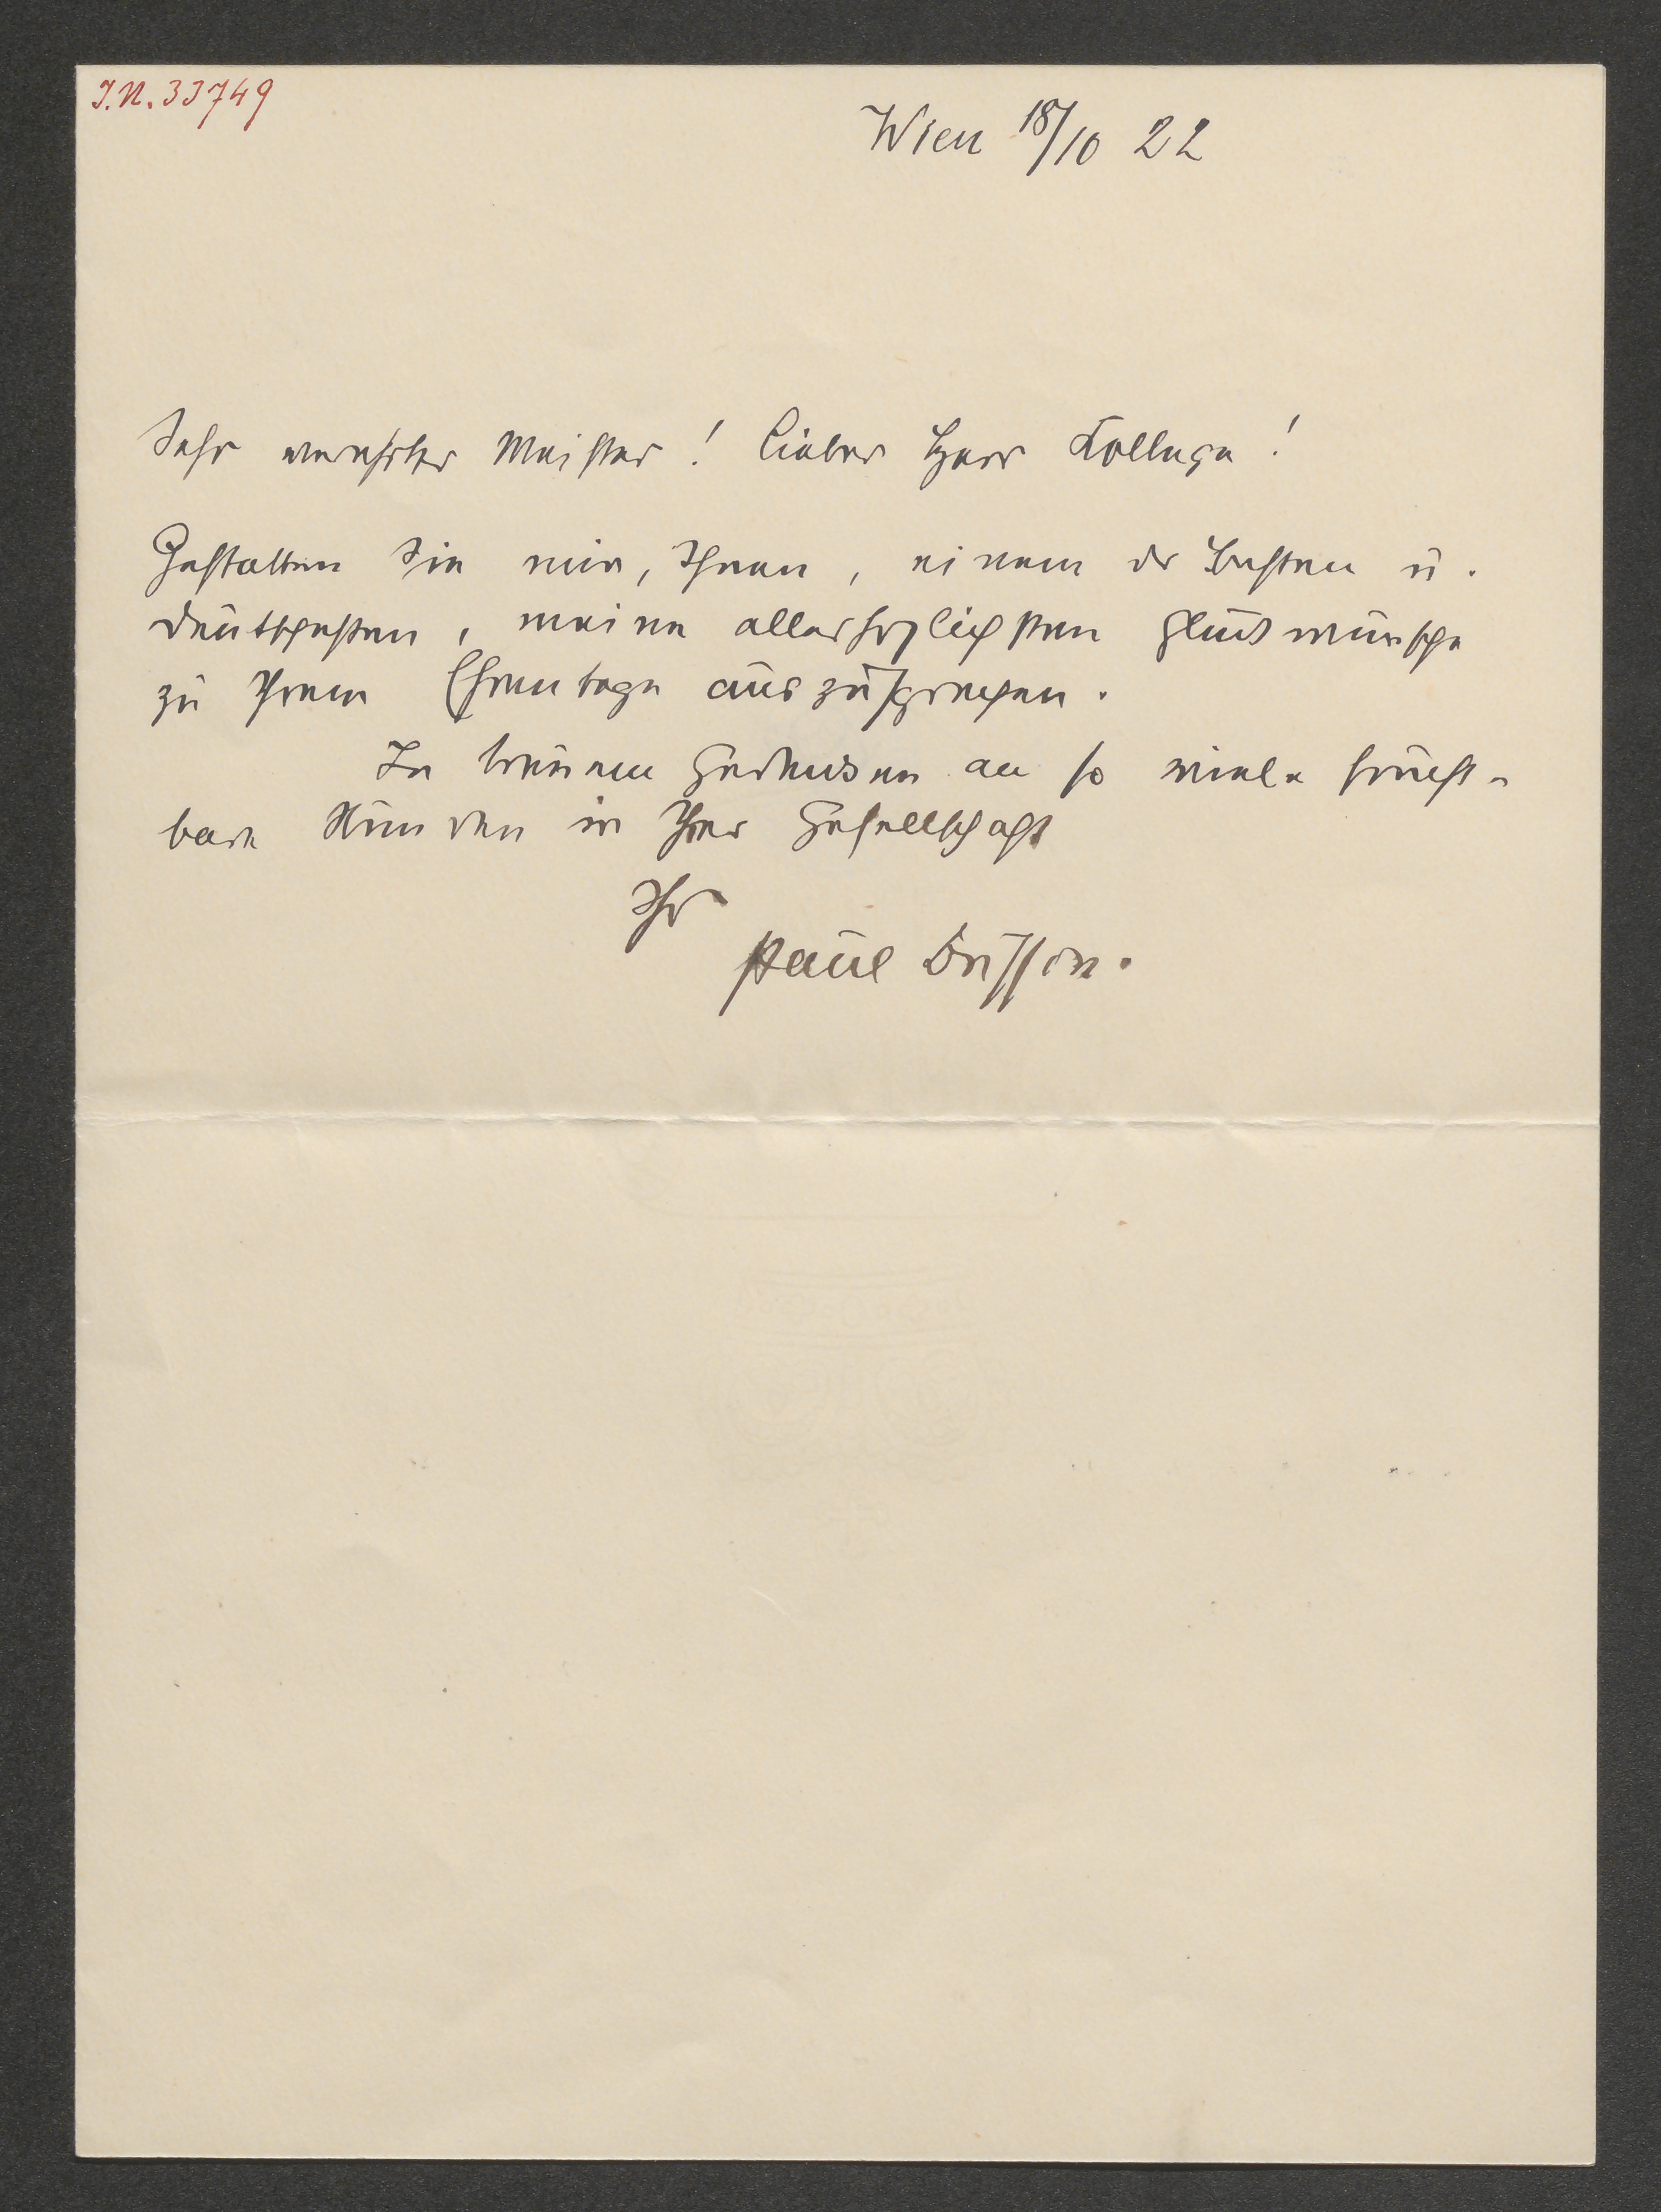 I.N. 33749
Wien 18/10 22
Sehr verehrter Meister! Lieber Herr Kollege!
Gestatten Sie mir, Ihnen, einem der Besten u.
Deutschesten, meine allerherzlichsten Glückwünsche
zu Ihrem Ehrentage auszusprechen.
In treuem Gedenken an so viele frucht-
bare Stunden in Ihrer Gesellschaft
Ihr
Paul